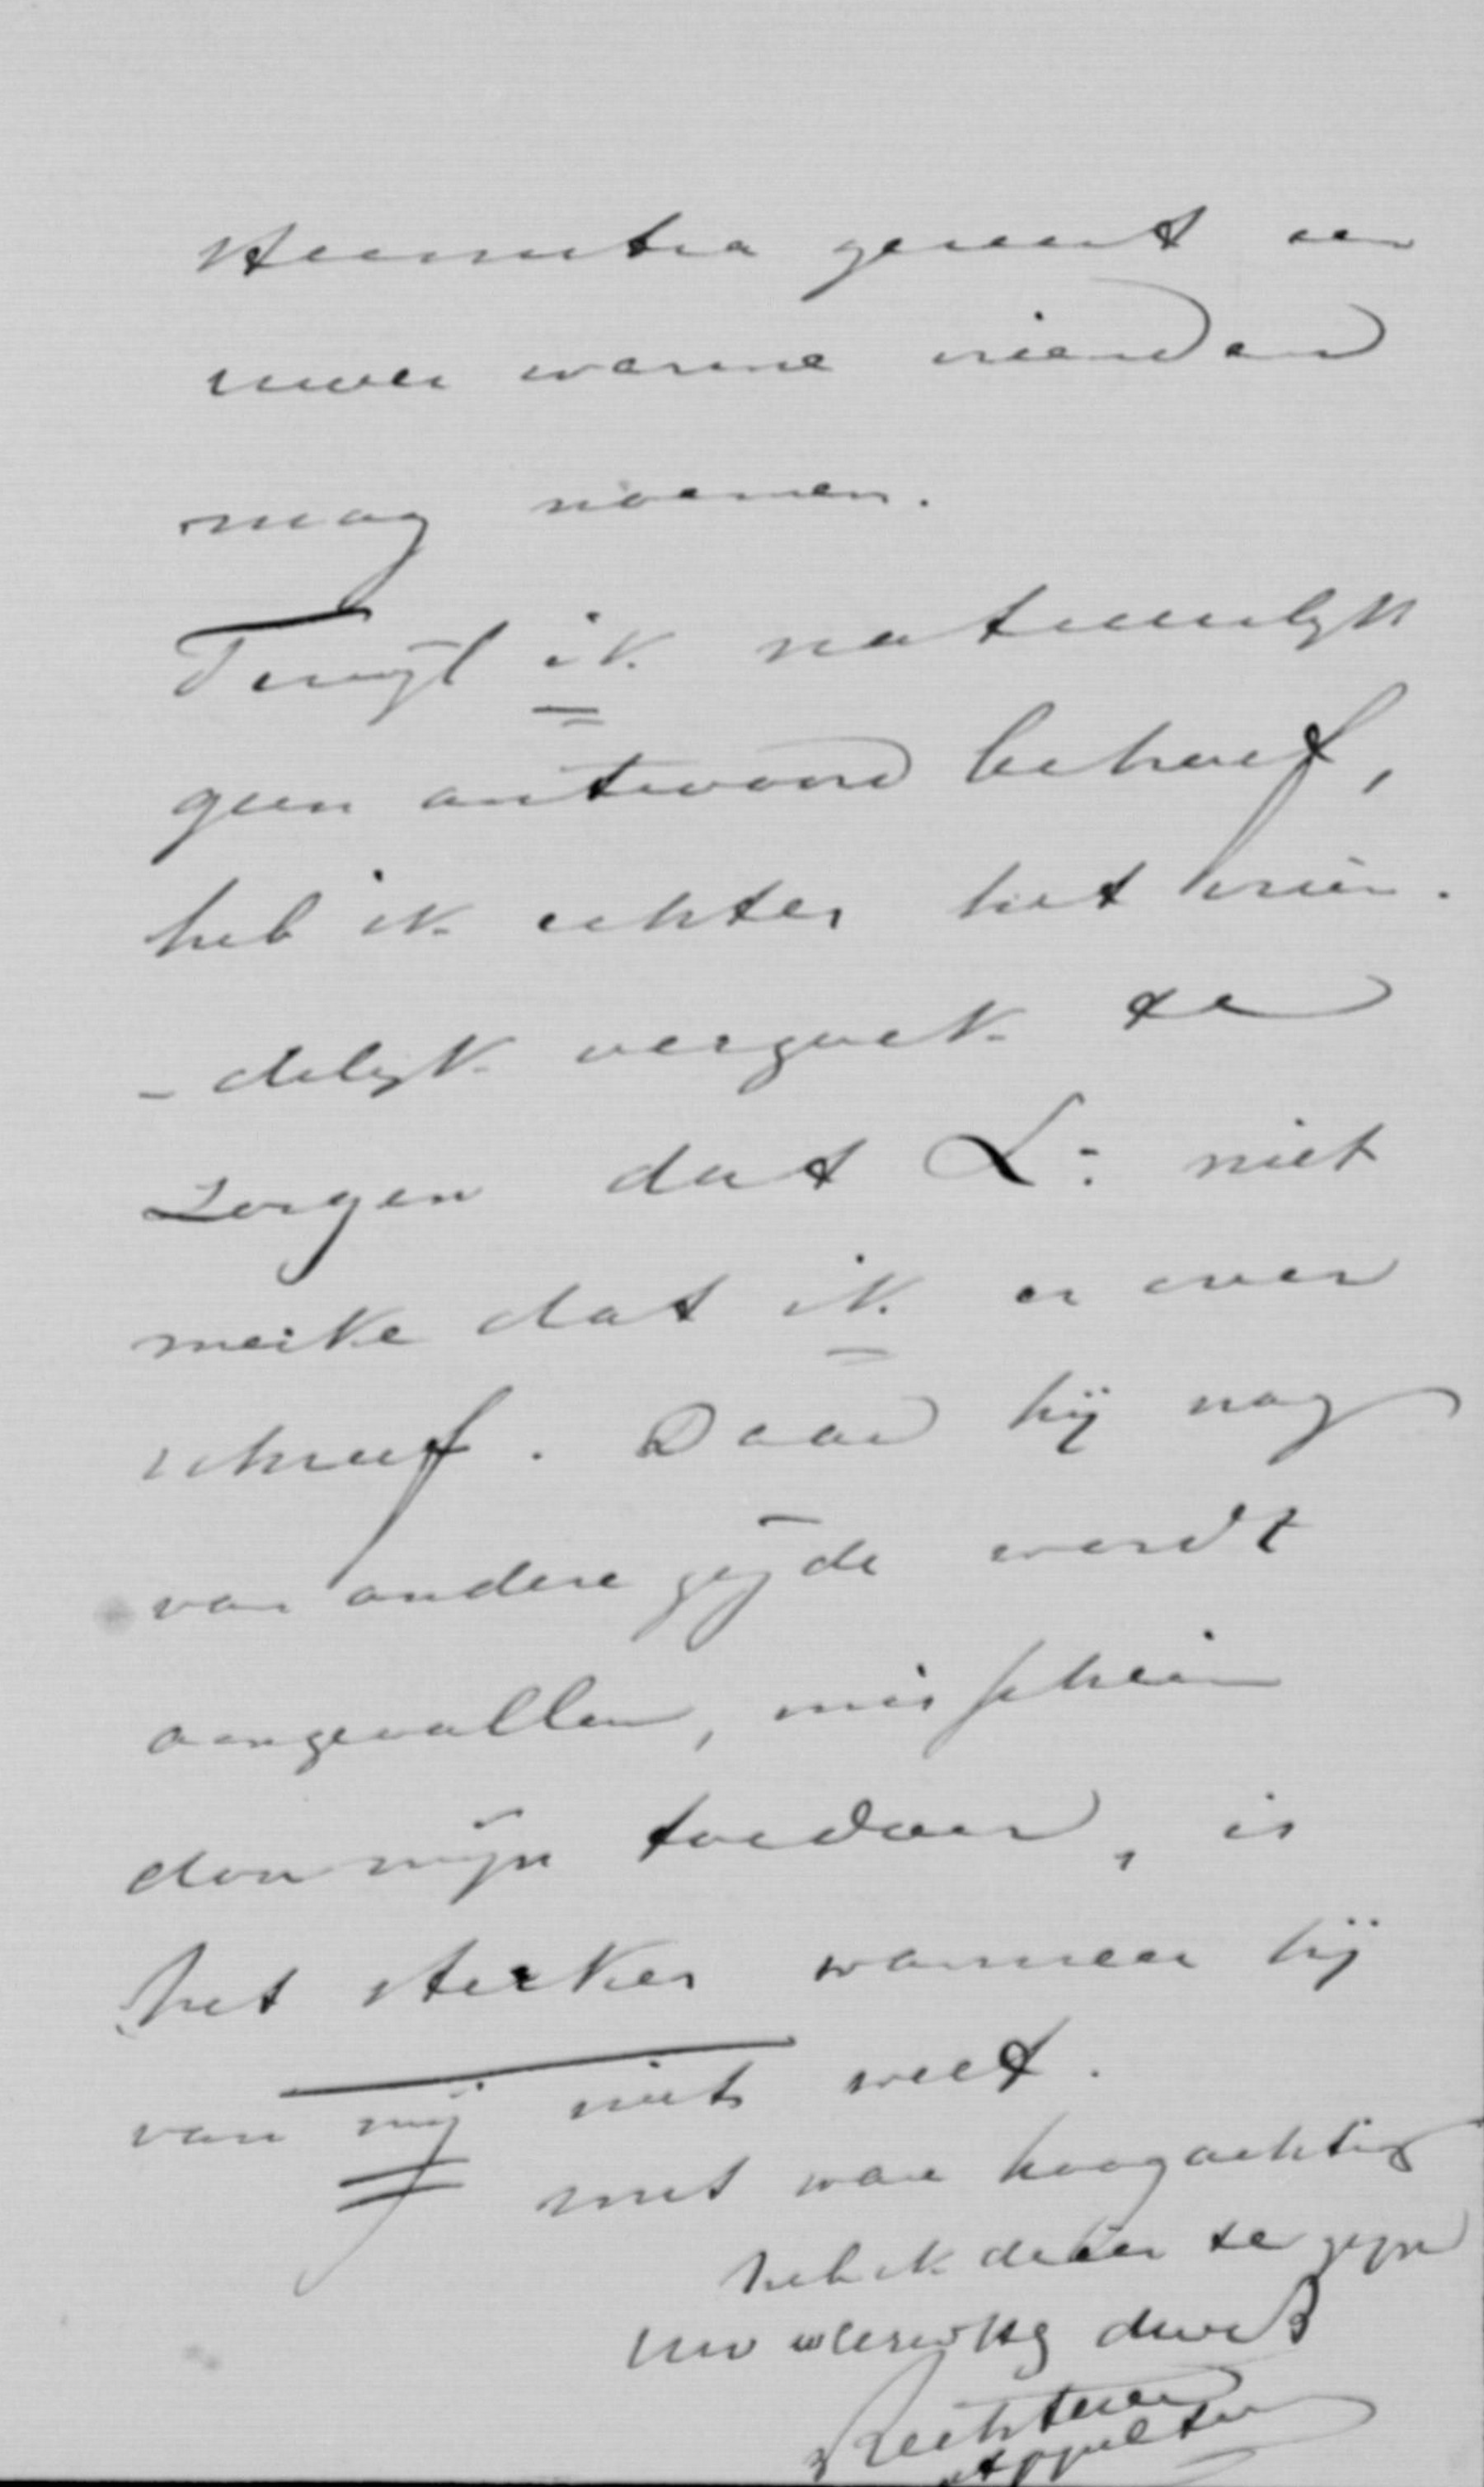 Heemstra gerust een
uwer warme vrienden
mag noemen.
Terwijl ik natuurlyk
geen antwoord behoef,
heb ik echter het vrien.
- delijk verzoek te
zorgen dat L: niet
merke dat ik er over
schreef. Daar hij nog
van andere zijde wordt
aangevallen, misschien
door mijn toedoen, is
het sterker wanneer hij
van mij niets weet.
met ware hoogachting
heb ik de eer te zijn
uw dw
Rechteren
Appeltern